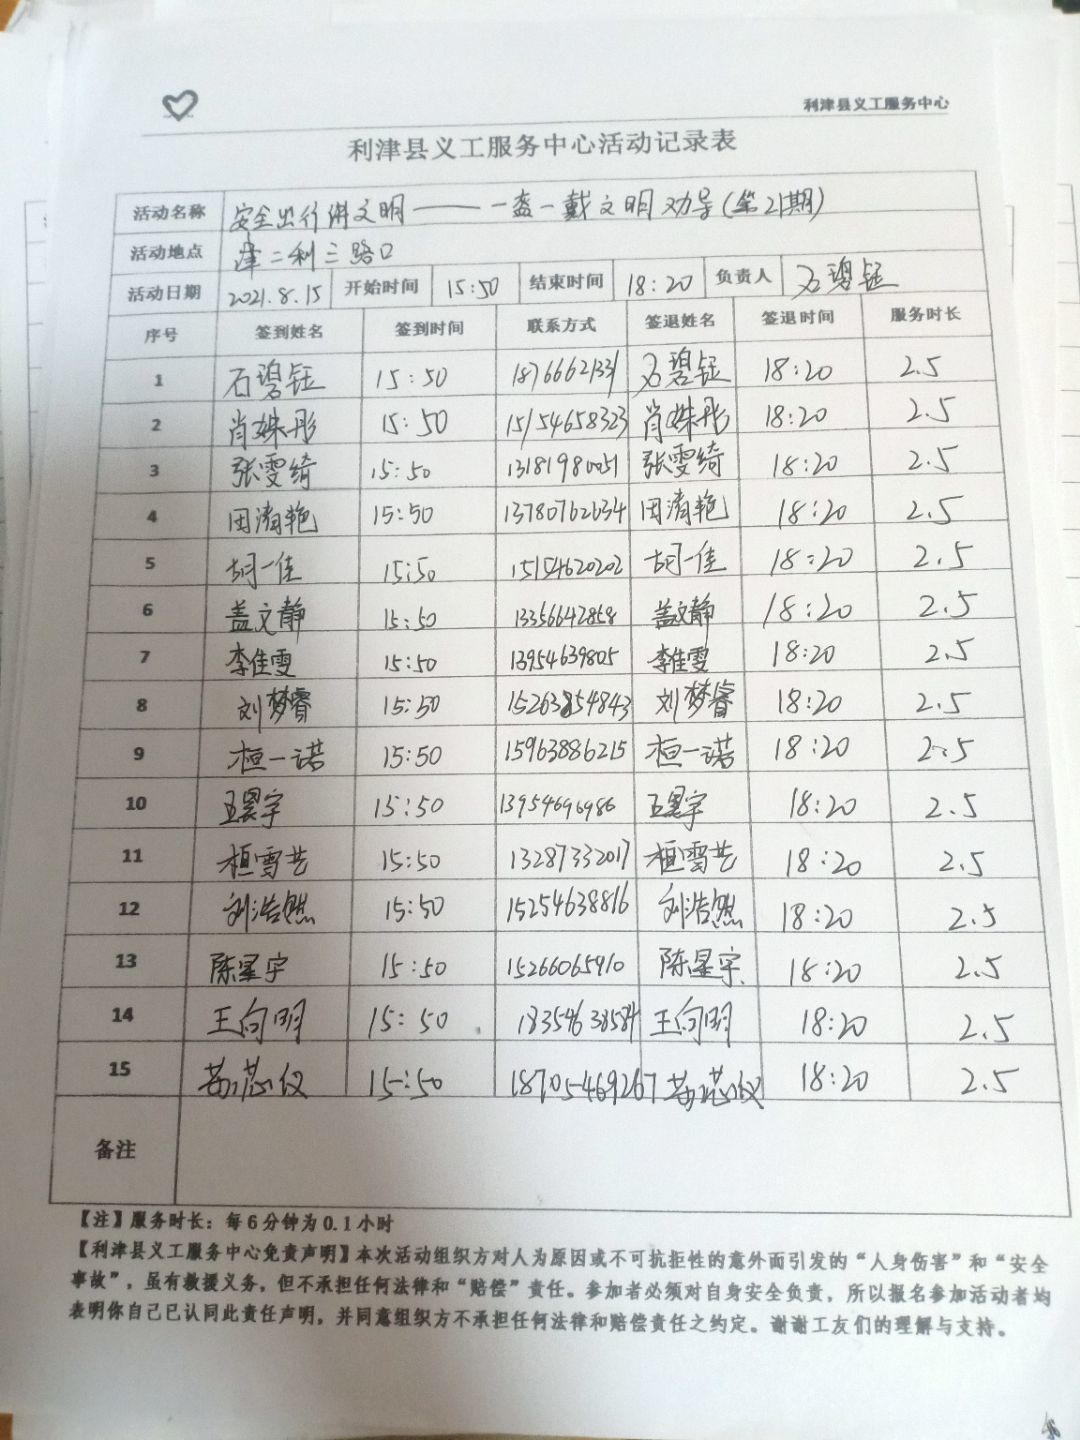 利津县义工服务中心
利津县义工服务中心活动记录表
活动名称 安全出行讲文明——一盔一戴文明劝导(第21期)
活动地点 津二利三路口
活动日期 2021.8.15 开始时间 15:50 结束时间 18:20 负责人 石碧钰
序号 签到姓名 签到时间 联系方式 签退姓名 签退时间 服务时长
1 石碧钰 15:50 18766621331 石碧钰 18:20 2.5
2 肖姝彤 15:50 15154658323 肖姝彤 18:20 2.5
3 张雯绮 15:50 13181980051 张雯绮 18:20 2.5
4 田清艳 15:50 13780762634 田清艳 18:20 2.5
5 胡一佳 15:50 15154620202 胡一佳 18:20 2.5
6 盖文静 15:50 13356642858 盖文静 18:20 2.5
7 李佳雯 15:50 13954639805 李佳雯 18:20 2.5
8 刘梦睿 15:50 15263854843 刘梦睿 18:20 2.5
9 桓一诺 15:50 15963886215 桓一诺 18:20 2.5
10 15:50 13954696986 18:20 2.5
11 桓雪艺 15:50 13287332017 桓雪艺 18:20 2.5
12 刘浩然 15:50 15254638816 刘浩然 18:20 2.5
13 陈星宇 15:50 15266065910 陈星宇 18:20 2.5
14 王向明 15:50 18354638584 王向明 18:20 2.5
15 苏芯仪 15:50 18705469267 苏芯仪 18:20 2.5
备注
【注】服务时长：每6分钟为0.1小时
【利津县义工服务中心免责声明】本次活动组织方对人为原因或不可抗拒性的意外而引发的“人身伤害”和“安全
事故”，虽有救援义务，但不承担任何法律和“赔偿”责任。参加者必须对自身安全负责，所以报名参加活动者均
表明你自己已认同此责任声明，并同意组织方不承担任何法律和赔偿责任之约定。谢谢工友们的理解与支持。